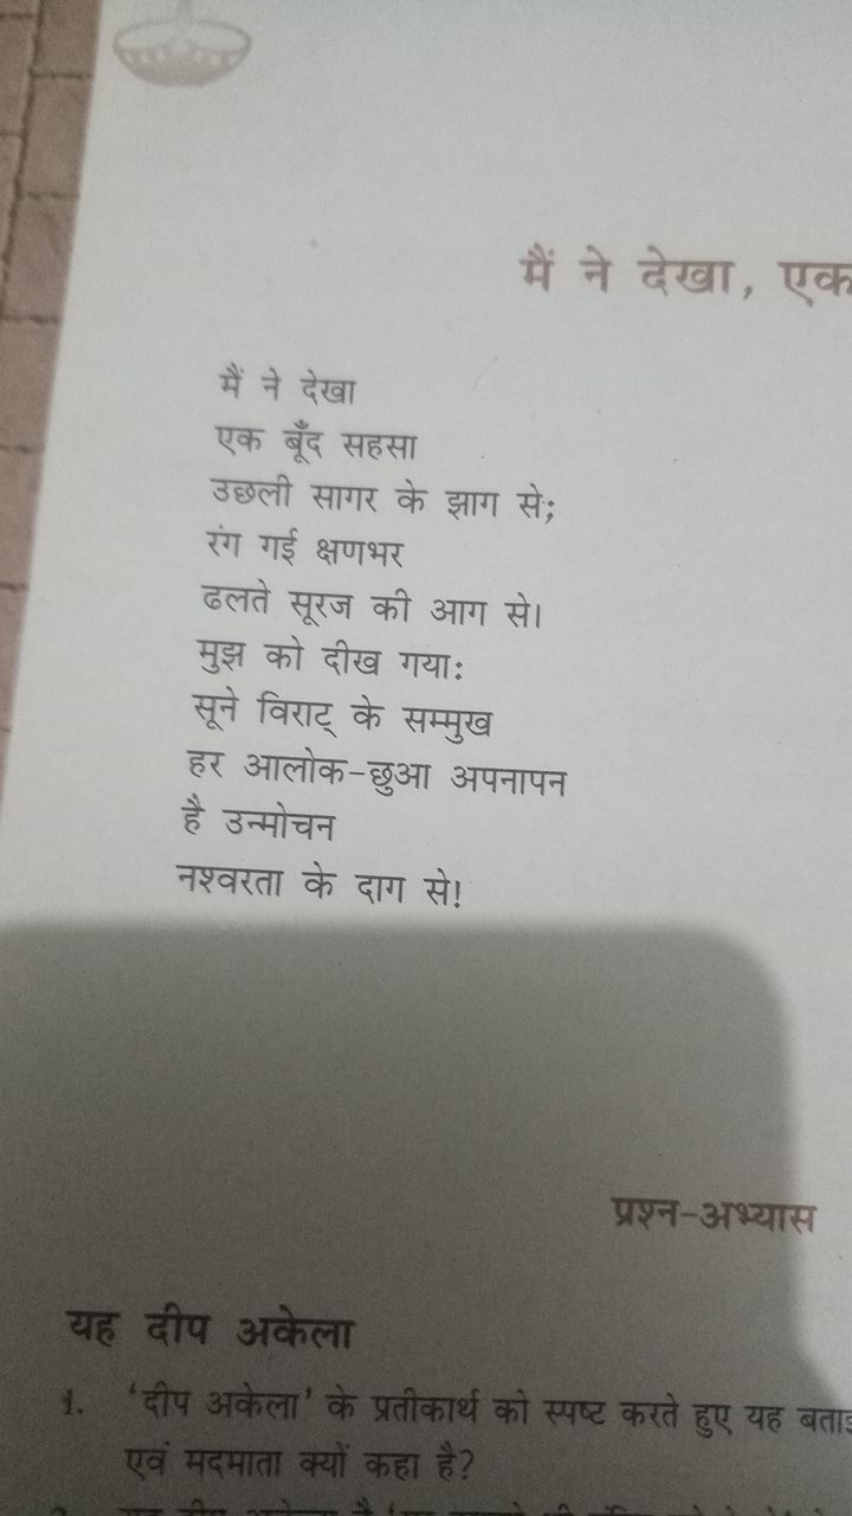 मैं ने देखा, एक
मैं ने देखा
एक बूँद सहसा
उछली सागर के झाग से;
रंग गई क्षणभर
ढलते सूरज की आग से।
मुझ को दीख गया:
सूने विराट् के सम्मुख
हर आलोक-छुआ अपनापन
है उन्मोचन
नश्वरता के दाग से!
प्रश्न-अभ्यास
यह दीप अकेला
1. 'दीप अकेला' के प्रतीकार्थ को स्पष्ट करते हुए यह
एवं मदमाता क्यों कहा है?